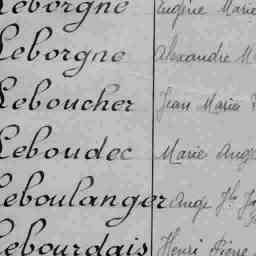 Leborgne Eugène Marie
Leborgne Alexandre M
Leboucher Jean Marie
Leboudec Marie Ange
Leboulanger Ange Jh
Lebourdais Henri Pierre